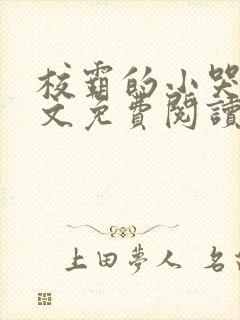 校霸的小哭
文免费閱讀
上田夢人 名